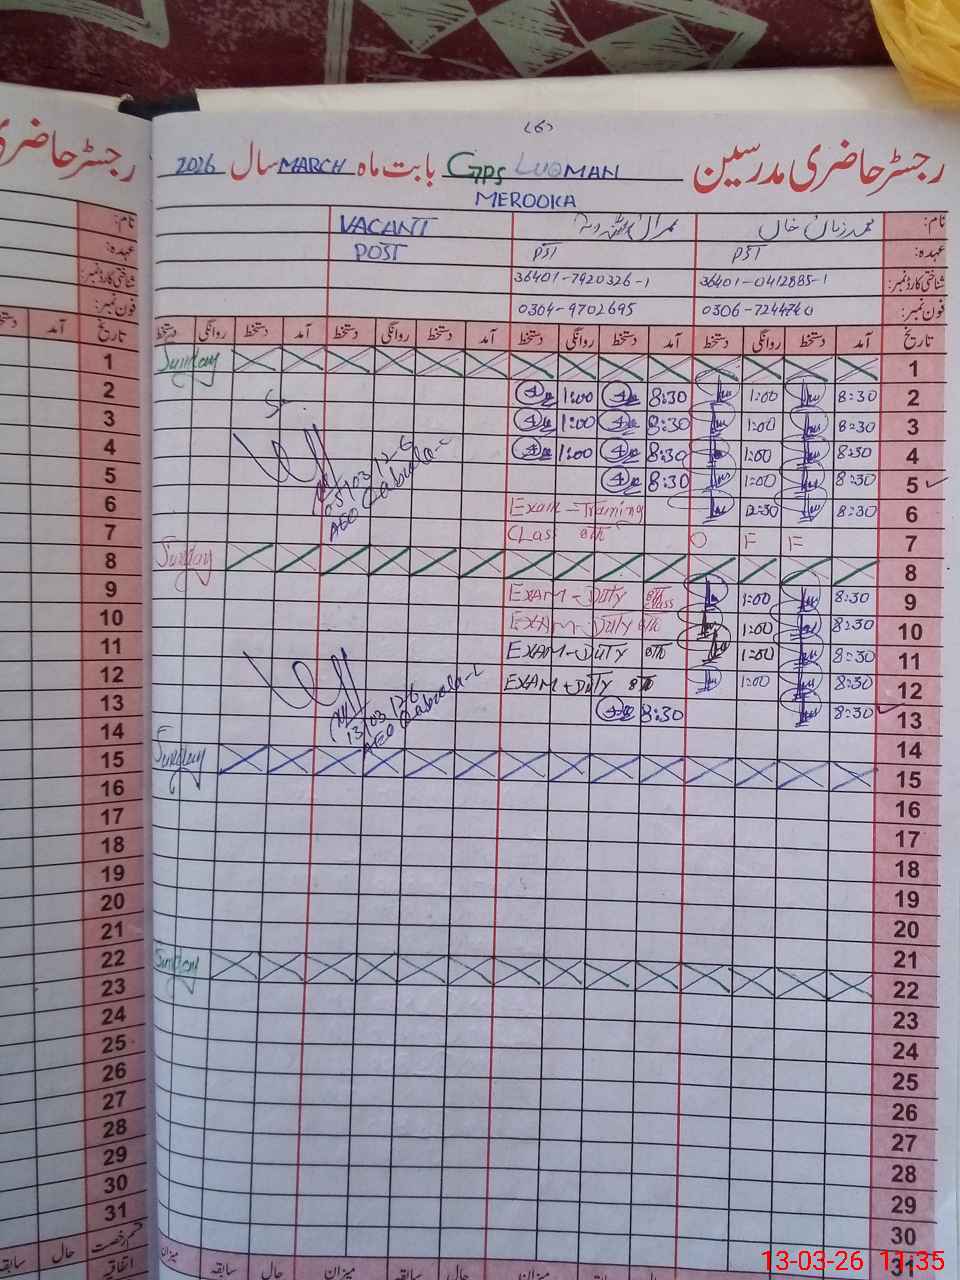 (6)
رجسٹر حاضری مدرسین GPS LUQMAN بابت ماہ MARCH سال 2026
MEROOKA
نام: محمد زمان خان VACANT
عہدہ: PST PST POST
شناختی کارڈ نمبر: 36401-0412885-1 36401-7920326-1
فون نمبر: 0304-9702695
تاریخ آمد دستخط روانگی دستخط آمد دستخط روانگی دستخط آمد دستخط روانگی دستخط آمد دستخط روانگی دستخط
1 Sunday
2 8:30 1:00 8:30 1:00
3 8:30 1:00 8:30 1:00
4 8:30 1:00 8:30 1:00
5 8:30 1:00 8:30
05/03/26
AEO Luddan
6 8:30 12:30 Exam - Training
7 F F O Class 8th
8 Sunday
9 8:30 1:00 EXAM - Duty 8th class
10 8:30 1:00 EXAM - Duty 8th
11 8:30 1:00 EXAM - Duty 8th
12 8:30 1:00 EXAM - Duty 8th
13 8:30 8:30
13/03/26
AEO
14
15 Sunday
16
17
18
19
20
21
22 Sunday
23
24
25
26
27
28
29
30
31
میزان حال سابقہ میزان حال سابقہ میزان
رجسٹر حاضری
نام:
عہدہ:
شناختی کارڈ نمبر:
فون نمبر:
تاریخ آمد
1
2
3
4
5
6
7
8
9
10
11
12
13
14
15
16
17
18
19
20
21
22
23
24
25
26
27
28
29
30
31
قسم رخصت حال سابقہ
اتفاقیہ
13-03-26 11:35